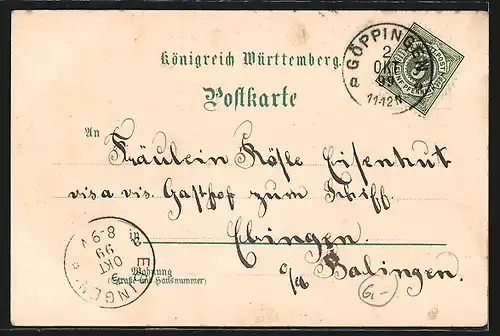 Königreich Württemberg.
Postkarte
GÖPPINGEN
2
OKT
99
11-12 N
FÜNF PFENNIG
An
Fräulein Rösle Eisenhut
vis a vis. Gasthof zum Schiff.
in Ebingen.
Wohnung
(Straße und Hausnummer)
Balingen.
EBINGEN
3
OKT
99
8-9 V
6-